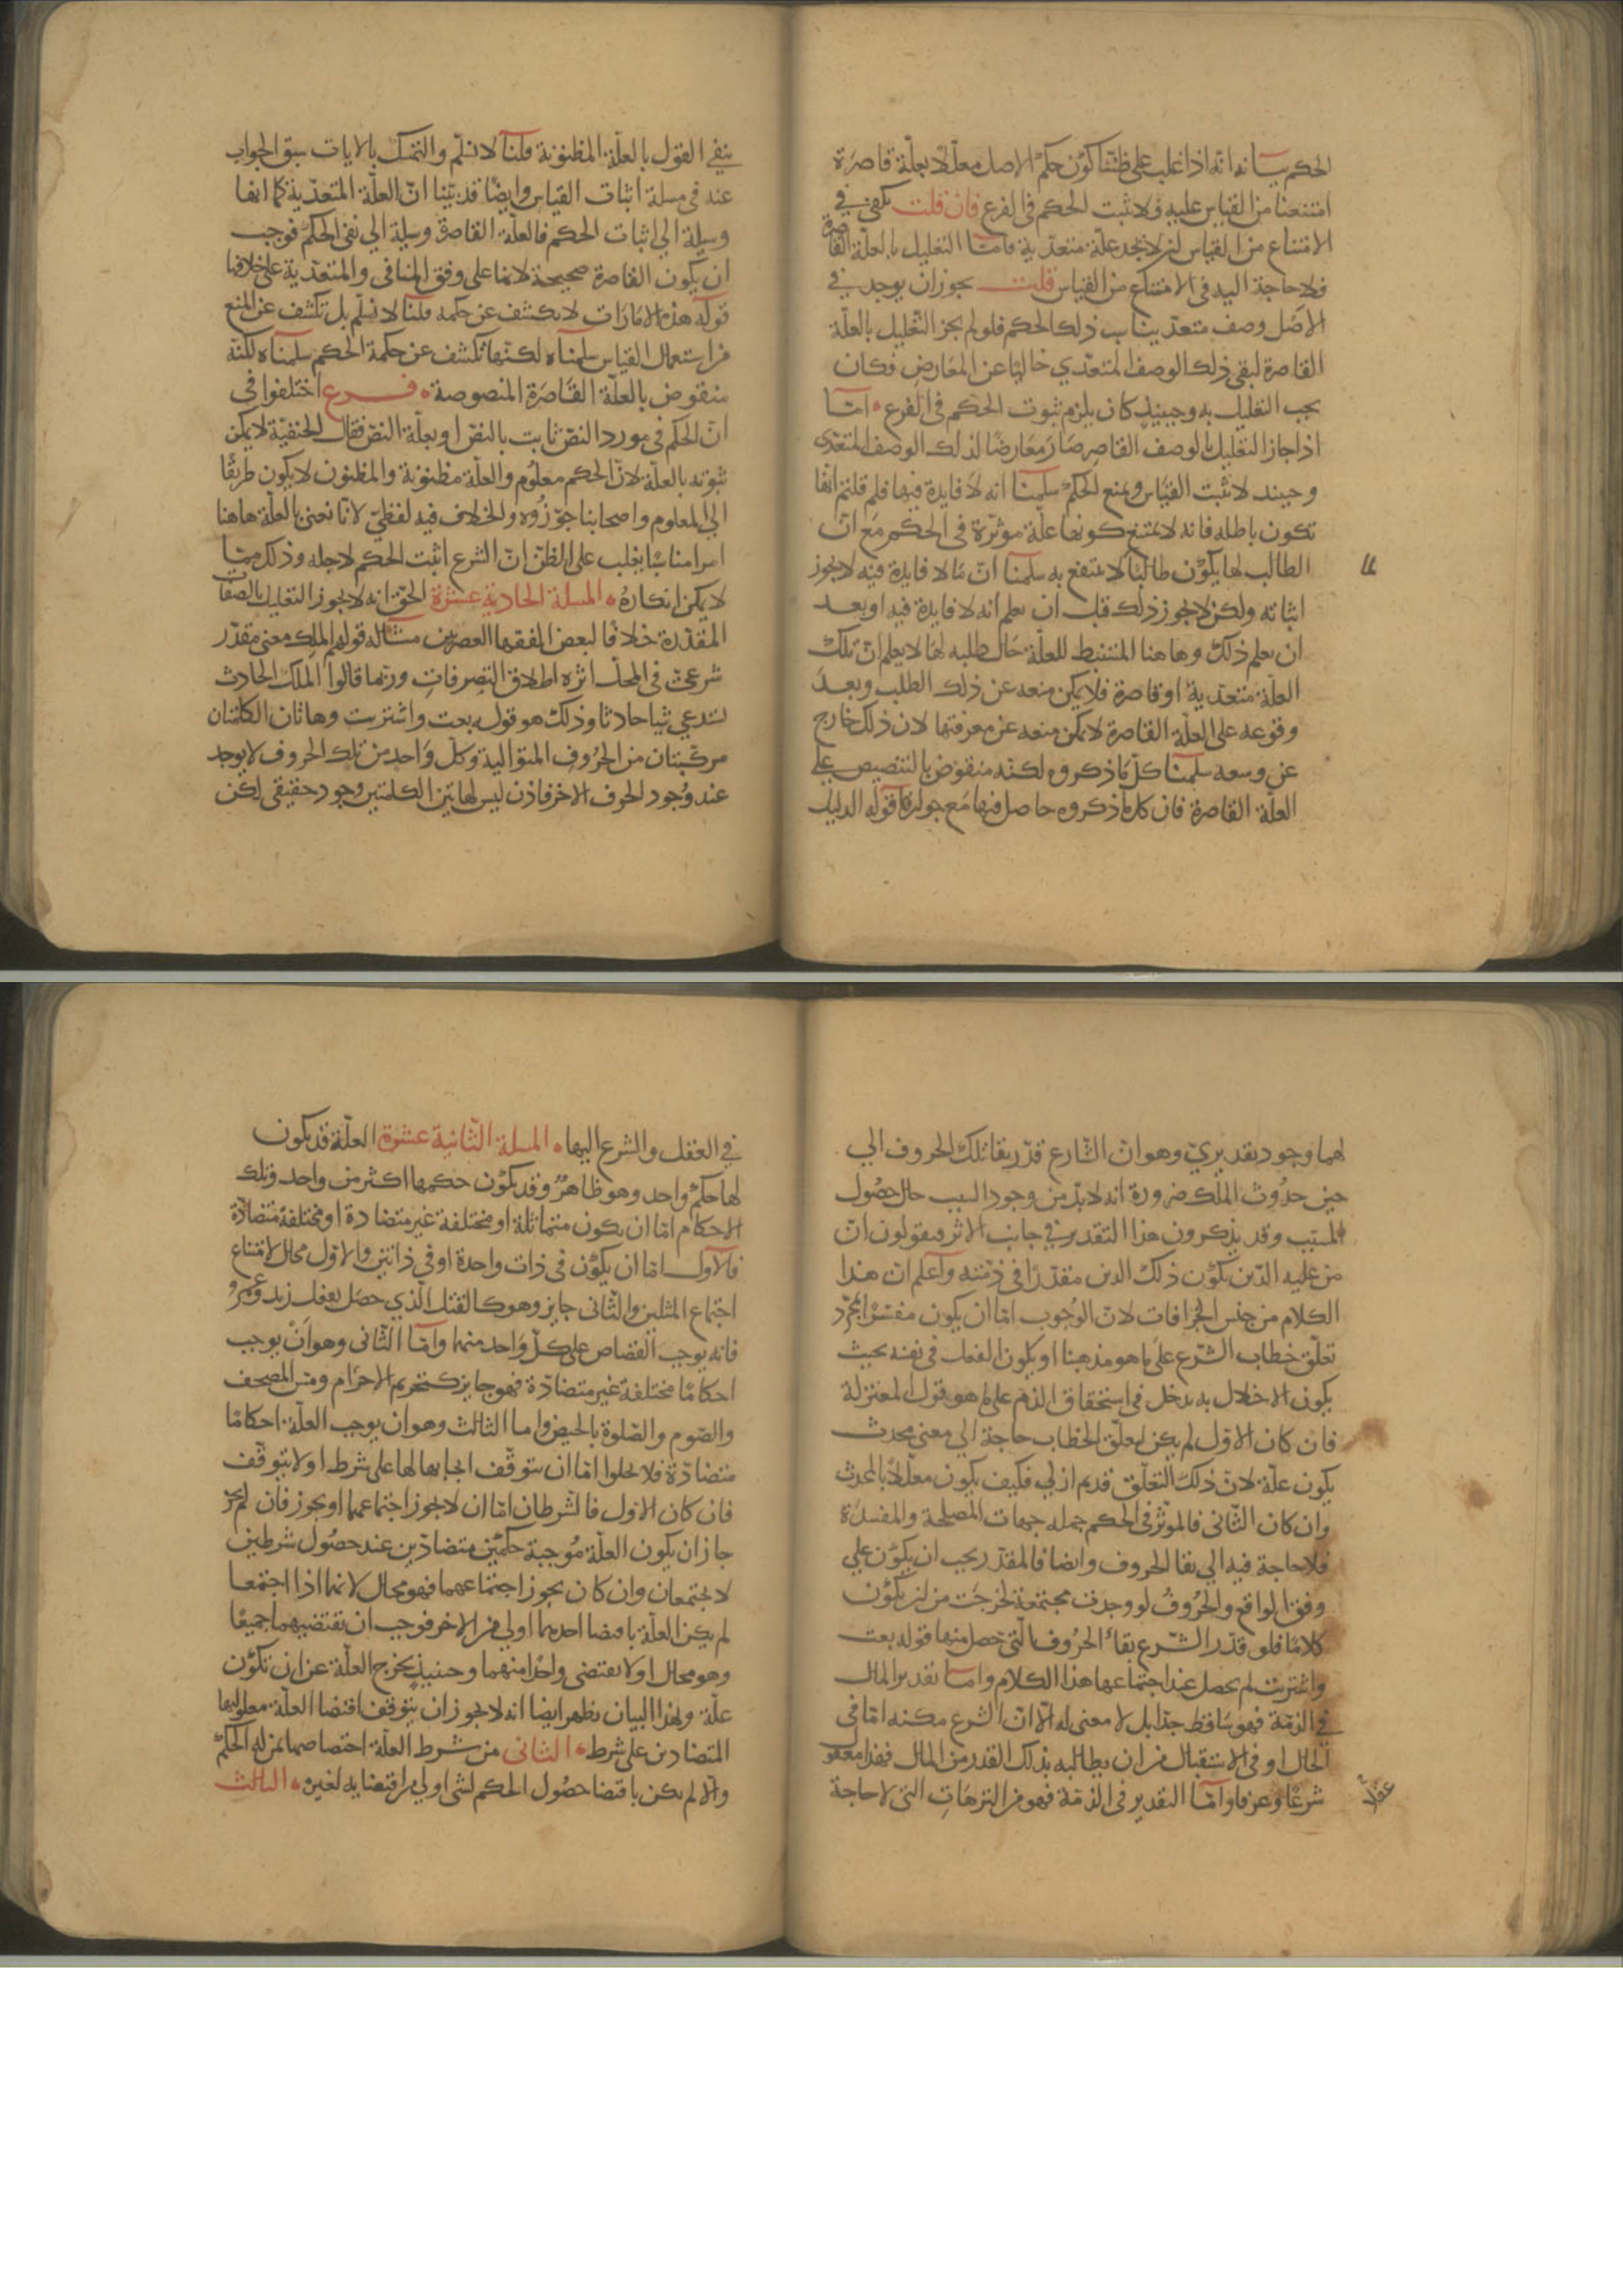 الحكم بيانه انه اذا غلب على ظننا كون حكم الاصل معللا بعلة قاصرة
امتنعنا من القياس عليه فلا يثبت الحكم في الفرع فان قلت يكفي في
الامتناع من القياس ان لا نجد علة متعدية فاما التعليل بالعلة القاصرة
فلا حاجة اليه في الامتناع من القياس قلت يجوز ان يوجد في
الاصل وصف متعد يناسب ذلك الحكم فلو لم يجز التعليل بالعلة
القاصرة لبقي ذلك الوصف المتعدي خاليا عن المعارض فكان
يجب التعليل به وحينيذ كان يلزم ثبوت الحكم في الفرع اما
اذا جاز التعليل بالوصف القاصر صار معارضا لذلك الوصف المتعدي
وحينيذ لا يثبت القياس ويمنع الحكم سلمنا انه لا فايدة فيها فلم قلتم انها
تكون باطله فانه لا يمتنع كونها علة موثرة في الحكم مع ان
الطالب لها يكون طالبا لما لا ينتفع به سلمنا ان ما لا فايدة فيه لا يجوز
اثباته ولكن لا يجوز ذلك قبل ان يعلم انه لا فايدة فيه او بعد
ان يعلم ذلك وهاهنا المستنبط للعلة حال طلبه لها لا يعلم ان تلك
العلة متعدية او قاصرة فلا يمكن منعه عن ذلك الطلب وبعد
وقوعه على العلة القاصرة لا يمكن منعه عن معرفتها لان ذلك خارج
عن وسعه سلمنا كل ما ذكروه لكنه منقوض بالتنصيص على
العلة القاصرة فان كل ما ذكروه حاصل فيها مع جوازها قوله الدليل
ينفي القول بالعلة المظنونة قلنا لا نسلم والتمسك بالايات سبق الجواب
عنه في مسلة اثبات القياس وايضا قد بينا ان العلة المتعدية كما انها
وسيلة الي اثبات الحكم فالعلة القاصرة وسيلة الي نفي الحكم فوجب
ان يكون القاصرة صحيحة لانها على وفق المنافي والمتعدية على خلافها
قوله هذه الامارات لا تكشف عن حكمه قلنا لا نسلم بل تكشف عن المنع
من استعمال القياس سلمناه لكنها تكشف عن حكمة الحكم سلمناه لكنه
منقوض بالعلة القاصرة المنصوصة فرع اختلفوا في
ان الحكم في مورد النص ثابت بالنص او بعلة النص فقال الحنفية لا يمكن
ثبوته بالعلة لان الحكم معلوم والعلة مظنونة والمظنون لا يكون طريقا
الي المعلوم واصحابنا جوزوه والخلاف فيه لفظي لانا نعني بالعلة هاهنا
امرا مناسبا يغلب على الظن ان الشرع اثبت الحكم لاجله وذلك مما
لا يمكن انكاره المسلة الحادية عشرة الحق انه لا يجوز التعليل بالصفات
المقدرة خلافا لبعض الفقها العصريين مثاله قولهم الملك معنى مقدر
شرعي في المحل اثره اطلاق التصرفات وربما قالوا الملك الحادث
يستدعي شيا حادثا وذلك هو قوله بعت واشتريت وهاتان الكلمتان
مركبتان من الحروف المتوالية وكل واحد من تلك الحروف لا يوجد
عند وجود الحرف الاخر فاذن ليس لهاتين الكلمتين وجود حقيقي لكن
لهما وجود تقديري وهو ان الشارع قدر بقا تلك الحروف الي
حين حدوث الملك ضرورة انه لا بد من وجود السبب حال حصول
المسبب وقد يذكرون هذا التقدير في جانب الاثر فيقولون ان
من عليه الدين يكون ذلك الدين مقدرا في ذمته واعلم ان هذا
الكلام من جنس الخرافات لان الوجوب اما ان يكون مفسرا بمجرد
تعلق خطاب الشرع على ما هو مذهبنا او بكون الفعل في نفسه بحيث
يكون الاخلال به يدخل في استحقاق الذم على ما هو قول المعتزلة
فان كان الاول لم يكن لتعلق الخطاب حاجة الي معنى محدث
يكون علة لان ذلك التعلق قديم ازلي فكيف يكون معللا بالمحدث
وان كان الثاني فالموثر في الحكم جمله جهات المصلحة والمفسدة
فلا حاجة فيه الي بقا الحروف وايضا فالمقدر يجب ان يكون على
وفق الواقع والحروف لو وجدت مجتمعة لخرجت من ان يكون
كلاما فلو قدر الشرع بقاء الحروف التي حصل منها قوله بعت
واشتريت لم يحصل عند اجتماعها هذا الكلام واما تقدير المال
في الذمة فهو ساقط جدا بل لا معنى له الا ان الشرع مكنه اما في
الحال او في الاستقبال من ان يطالبه بذلك القدر من المال فهذا معقول
عقلا
شرعا وعرفا واما التقدير في الذمة فهو من الترهات التي لا حاجة
في العقل والشرع اليها المسلة الثانية عشرة العلة قد يكون
لها حكم واحد وهو ظاهر وقد يكون حكمها اكثر من واحد وتلك
الاحكام اما ان يكون متماثلة او مختلفة غير متضادة او مختلفة متضادة
فالاول اما ان يكون في ذات واحدة او في ذاتين والاول محال لامتناع
اجتماع المثلين والثاني جايز وهو كالقتل الذي حصل بفعل زيد وعمرو
فانه يوجب القصاص على كل واحد منهما واما الثاني وهو ان يوجب
احكاما مختلفة غير متضادة فهو جايز كتحريم الاحرام ومس المصحف
والصوم والصلوة بالحيض واما الثالث وهو ان يوجب العلة احكاما
متضادة فلا يخلوا اما ان يتوقف ايجابها لها على شرط او لا يتوقف
فان كان الاول فالشرطان اما ان لا يجوز اجتماعهما او يجوز فان لم يجز
جاز ان يكون العلة موجبة حكمين متضادين عند حصول شرطين
لا يجتمعان وان كان يجوز اجتماعهما فهو محال لانهما اذا اجتمعا
لم يكن العلة باقتضا احدهما اولي من الاخر فوجب ان تقتضيهما جميعا
وهو محال او لا يقتضي واحدا منهما وحينيذ يخرج العلة عن ان تكون
علة وبهذا البيان يظهر ايضا انه لا يجوز ان يتوقف اقتضا العلة معلوليها
المتضادين على شرط الثاني من شرط العلة اختصاصها بمن له الحكم
والا لم يكن باقتضا حصول الحكم لشي اولي من اقتضايه لغيره الثالث